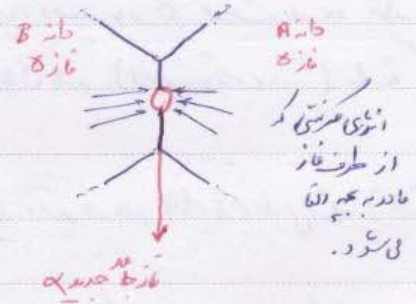 دانه B
فاز γ
دانه A
فاز γ
انرژی کرنشی که
از طرف فاز
مادر به جوانه القا
می شود.
فاز جدید α